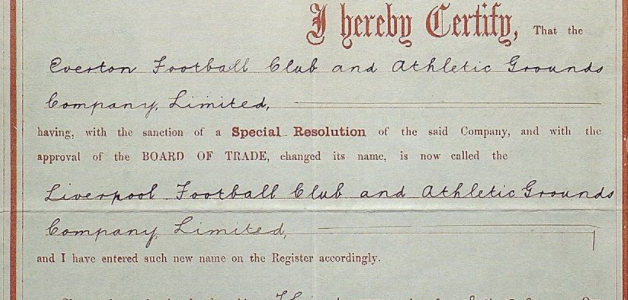 I hereby Certify, That the
Everton Football Club and Athletic Grounds
Company, Limited,
having, with the sanction of a Special Resolution of the said Company, and with the
approval of the BOARD OF TRADE, changed its name, is now called the
Liverpool Football Club and Athletic Grounds
Company, Limited,
and I have entered such new name on the Register accordingly.